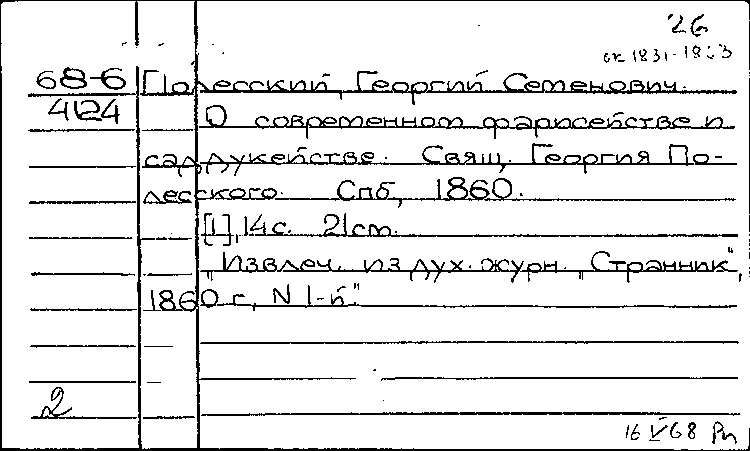 26
ок 1831-1863
68-6 Полесский, Георгий Семенович.
4124 О современном фарисействе и
саддукействе. Свящ. Георгия По-
лесского. Спб, 1860.
[1], 14 с. 21 см.
„Извлеч. из дух. журн. „Странник",
1860 г, N 1-й."
2
16 V 68